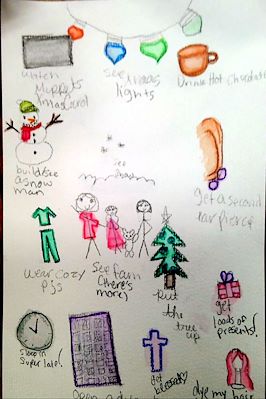 watch
Muppets
Xmas Carol
see
xmas
lights
Drink Hot Chocolate
build/see
a snow
man
see
snow
get a second
ear pierce
wear cozy
pjs
see fam
(there's
more)
put
the
tree
up
get
loads of
presents!
sleep in
super late!
Open
get
blessed
dye my hair